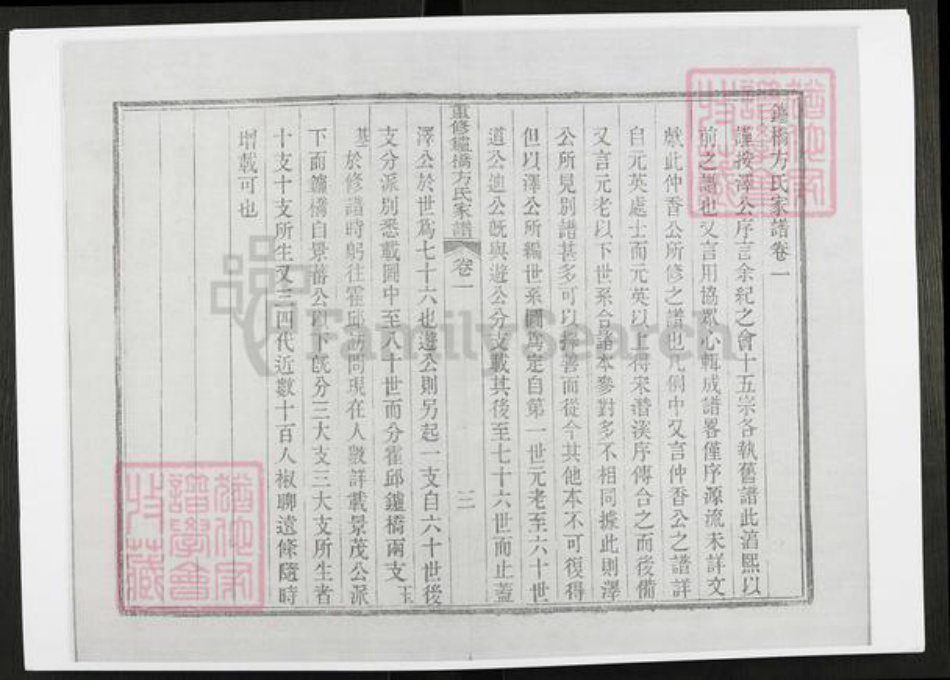 鑪橋方氏家譜卷一
謹按澤公序言余紀之會十五宗各執舊譜此淯熙以
前之譜也又言用協眾心輯成譜畧僅序源流未詳文
獻此仲香公所修之譜也凡例中又言仲香公之譜詳
自元英處士而元英以上得宋潛溪序傳合之而後備
又言元老以下世系合諸本參對多不相同據此則澤
公所見別譜甚多可以擇善而從今其他本不可復得
但以澤公所編世系圖為定自第一世元老至六十世
道公迪公旣與遊公分支載其後至七十六世而止蓋
重修鑪橋方氏家譜 卷一 二
澤公於世為七十六也遊公則另起一支自六十世後
支分派別悉載圖中至八十世而分霍邱鑪橋兩支玉
基於修譜時躬往霍邱訪問現在人數詳載景茂公派
下而鑪橋自景蕃公派下旣分三大支三大支所生者
十支十支所生又三四代近數十百人椒聊遠條隨時
增載可也
猶他家譜學會收藏
猶他家譜學會收藏
FamilySearch